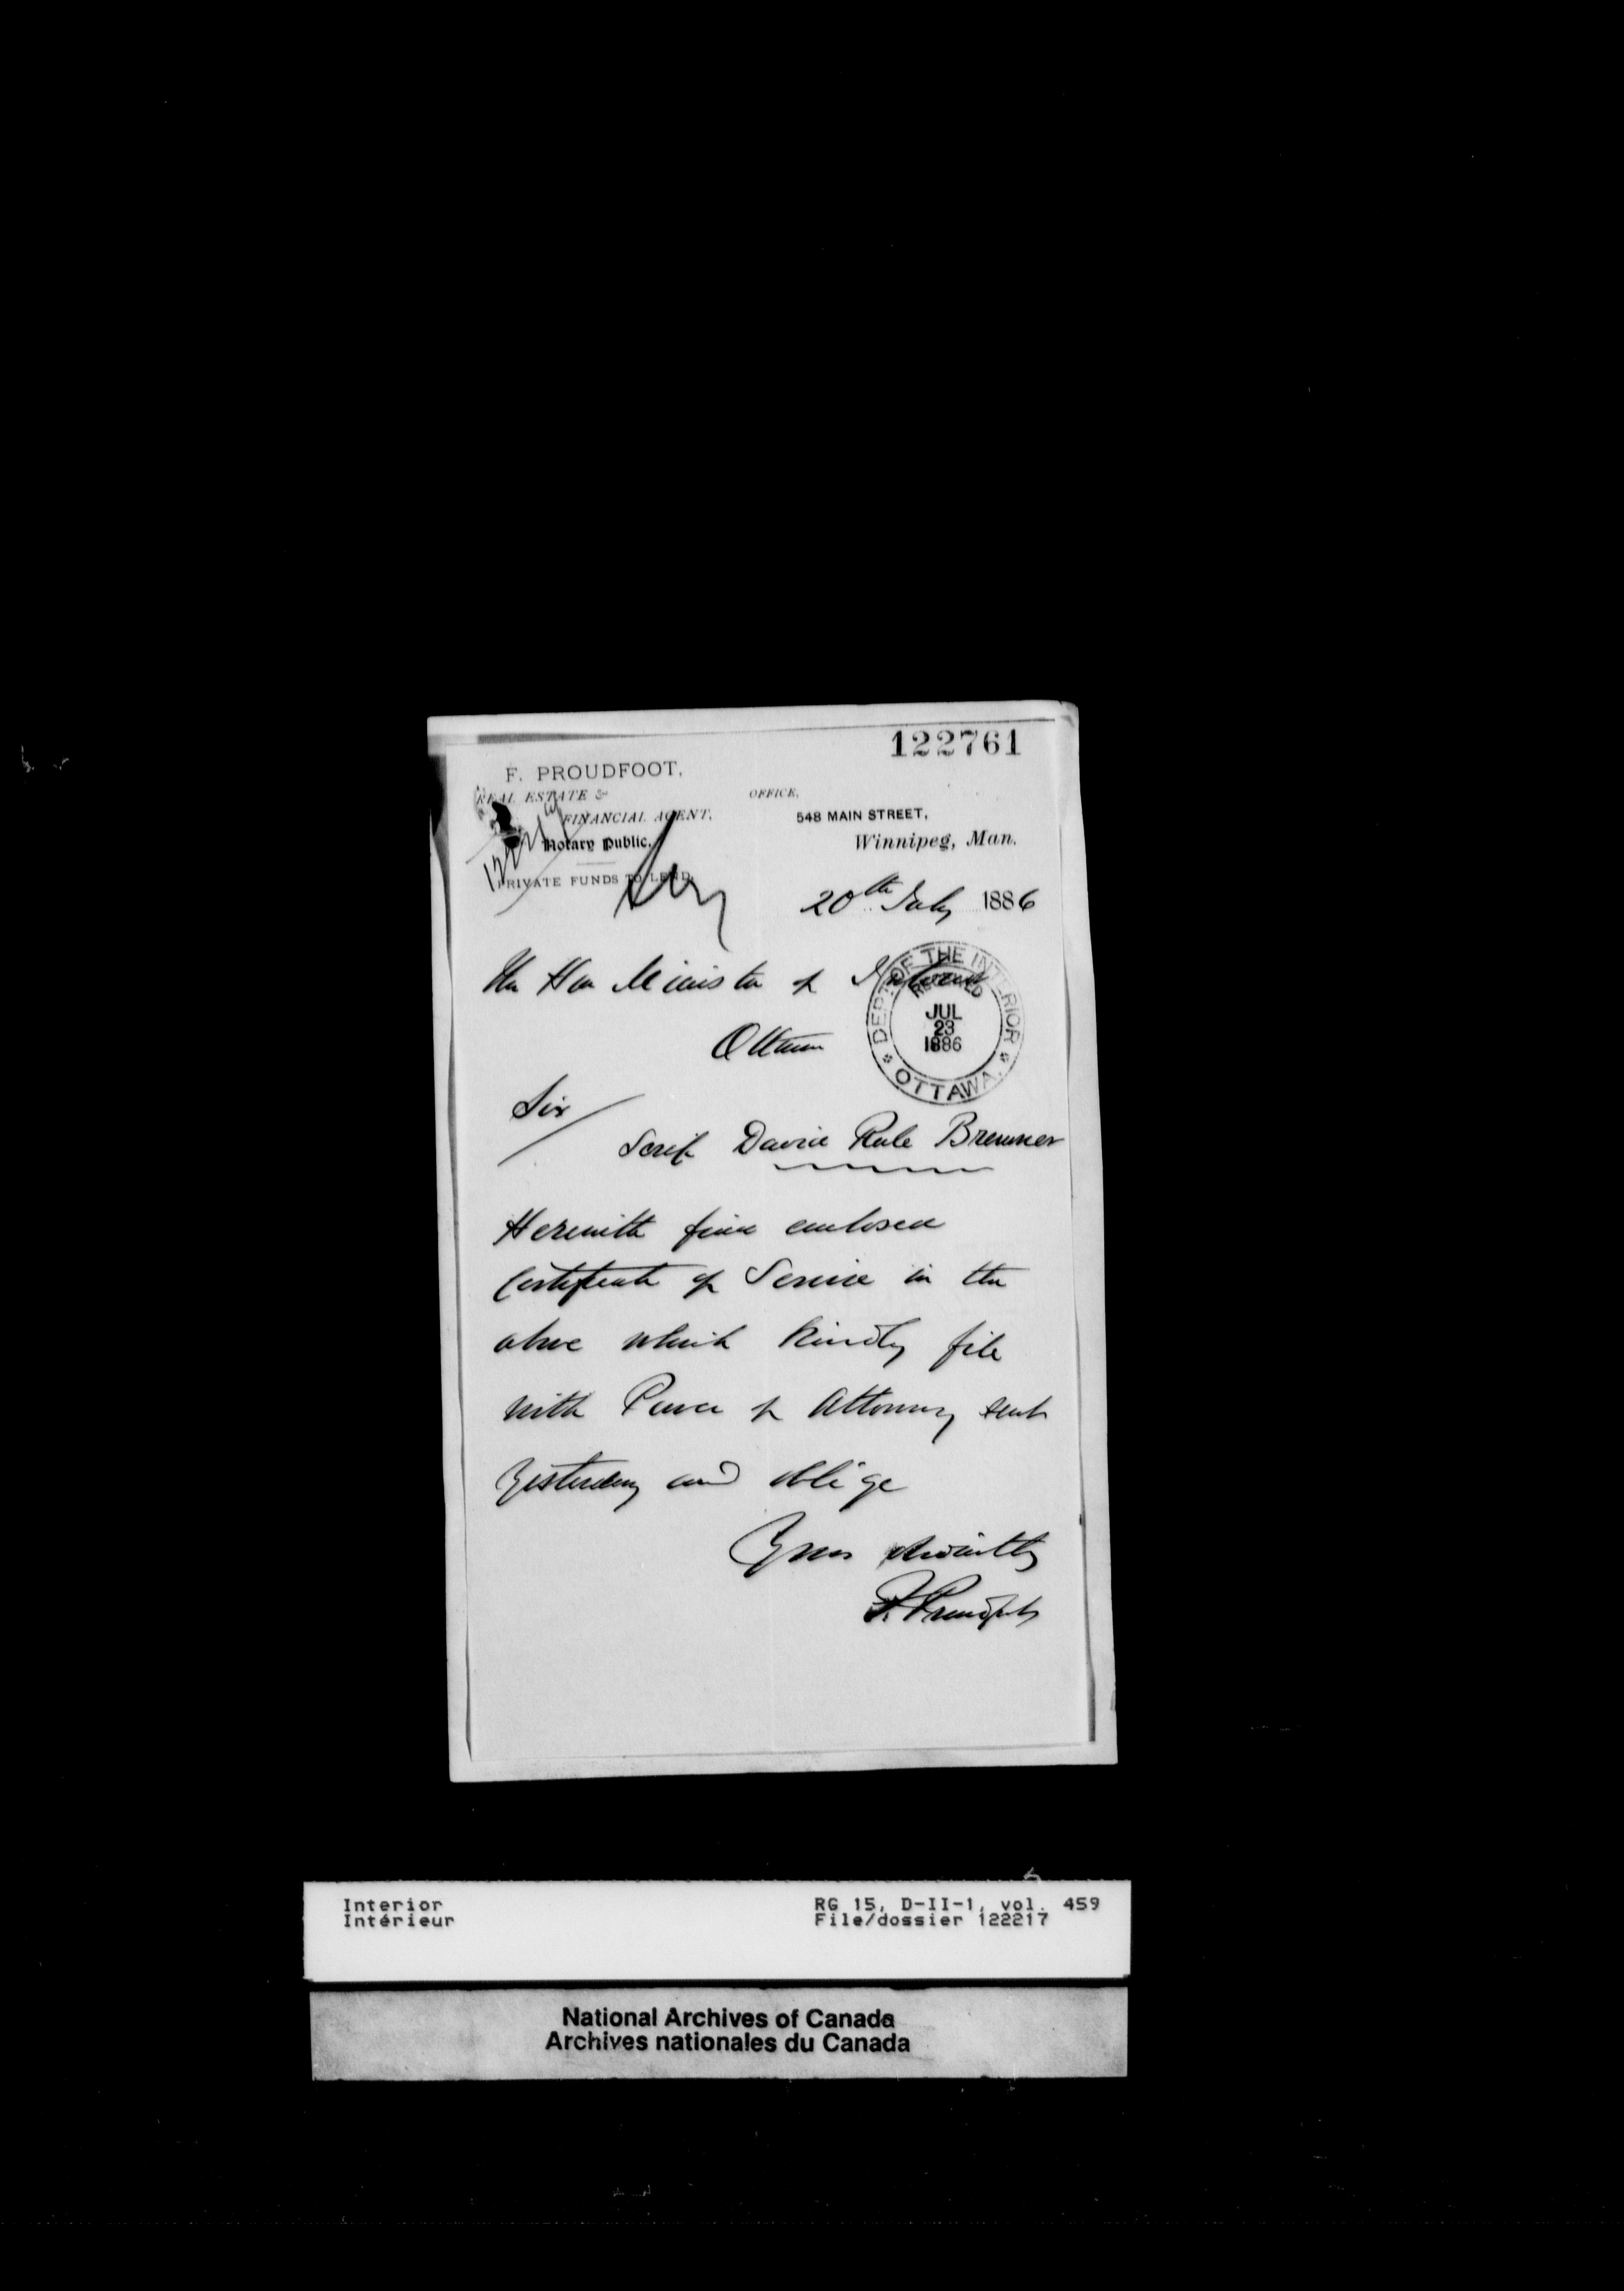 122761
F. PROUDFOOT,
REAL ESTATE &
FINANCIAL AGENT,
Notary Public,
PRIVATE FUNDS TO LEND.
OFFICE,
548 MAIN STREET,
Winnipeg, Man.
20th July 1886
The Hon Minister of Interior
Ottawa
DEPT. OF THE INTERIOR
RECEIVED
JUL
23
1886
* OTTAWA. *
Sir
Scrip David Rule Bremner
Herewith find enclosed
Certificate of Service in the
above which kindly file
with Power of Attorney sent
yesterday and oblige
Yours obediently
F. Proudfoot
Interior
Intérieur
RG 15, D-II-1, vol. 459
File/dossier 122217
National Archives of Canada
Archives nationales du Canada